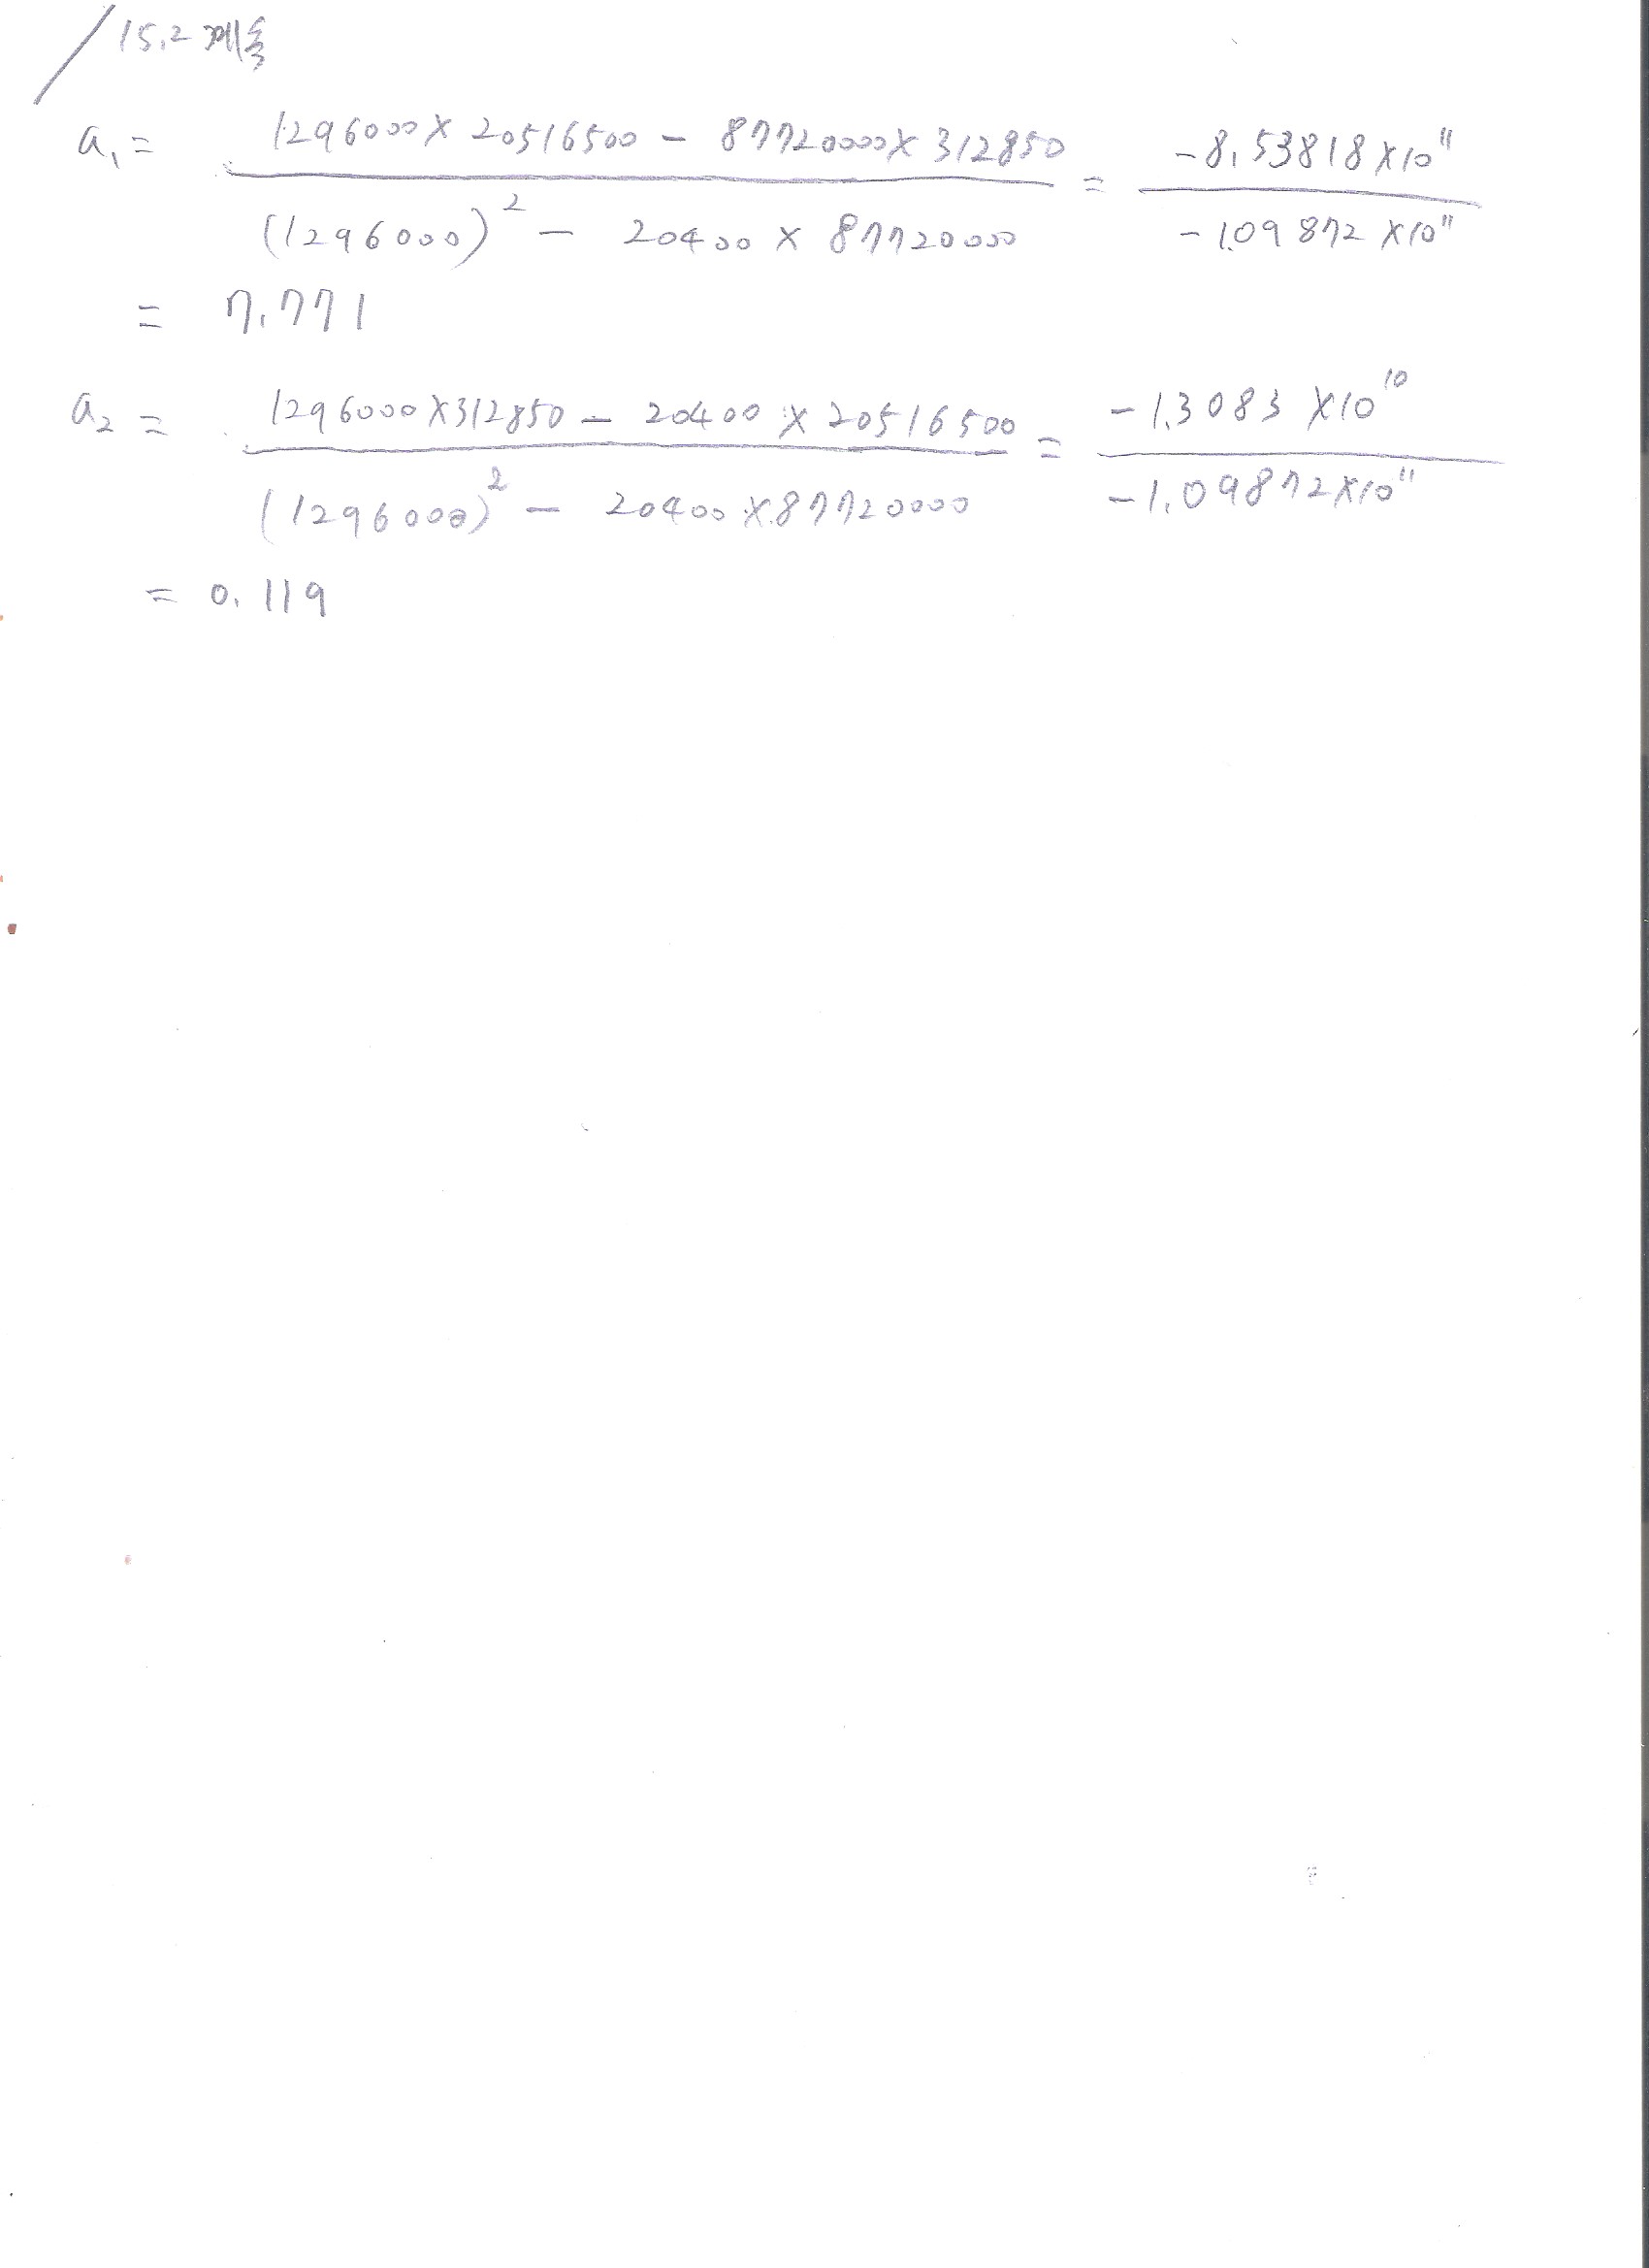 15.2 계속
a₁ = (1296000 × 20516500 - 87720000 × 312850) / ((1296000)² - 20400 × 87720000) = (-8.53818 × 10¹¹) / (-1.09872 × 10¹¹)
= 7.771
a₂ = (1296000 × 312850 - 20400 × 20516500) / ((1296000)² - 20400 × 87720000) = (-1.3083 × 10¹⁰) / (-1.09872 × 10¹¹)
= 0.119